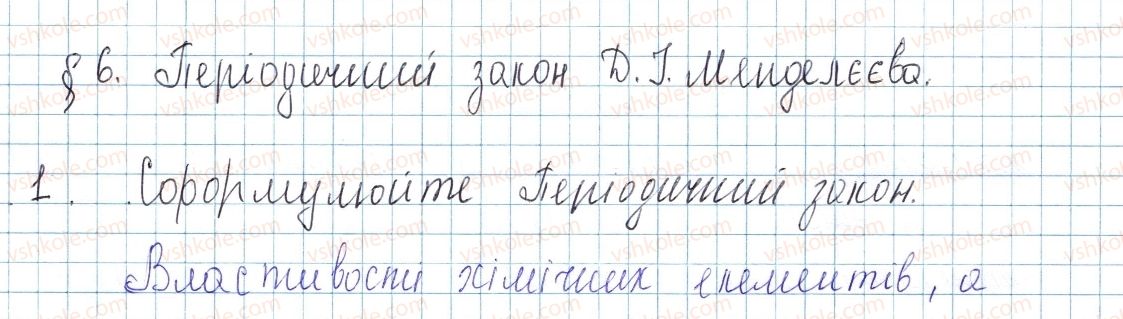 § 6. Періодичний закон Д.І. Менделєєва.
1. Сформулюйте Періодичний закон.
Властивості хімічних елементів, а